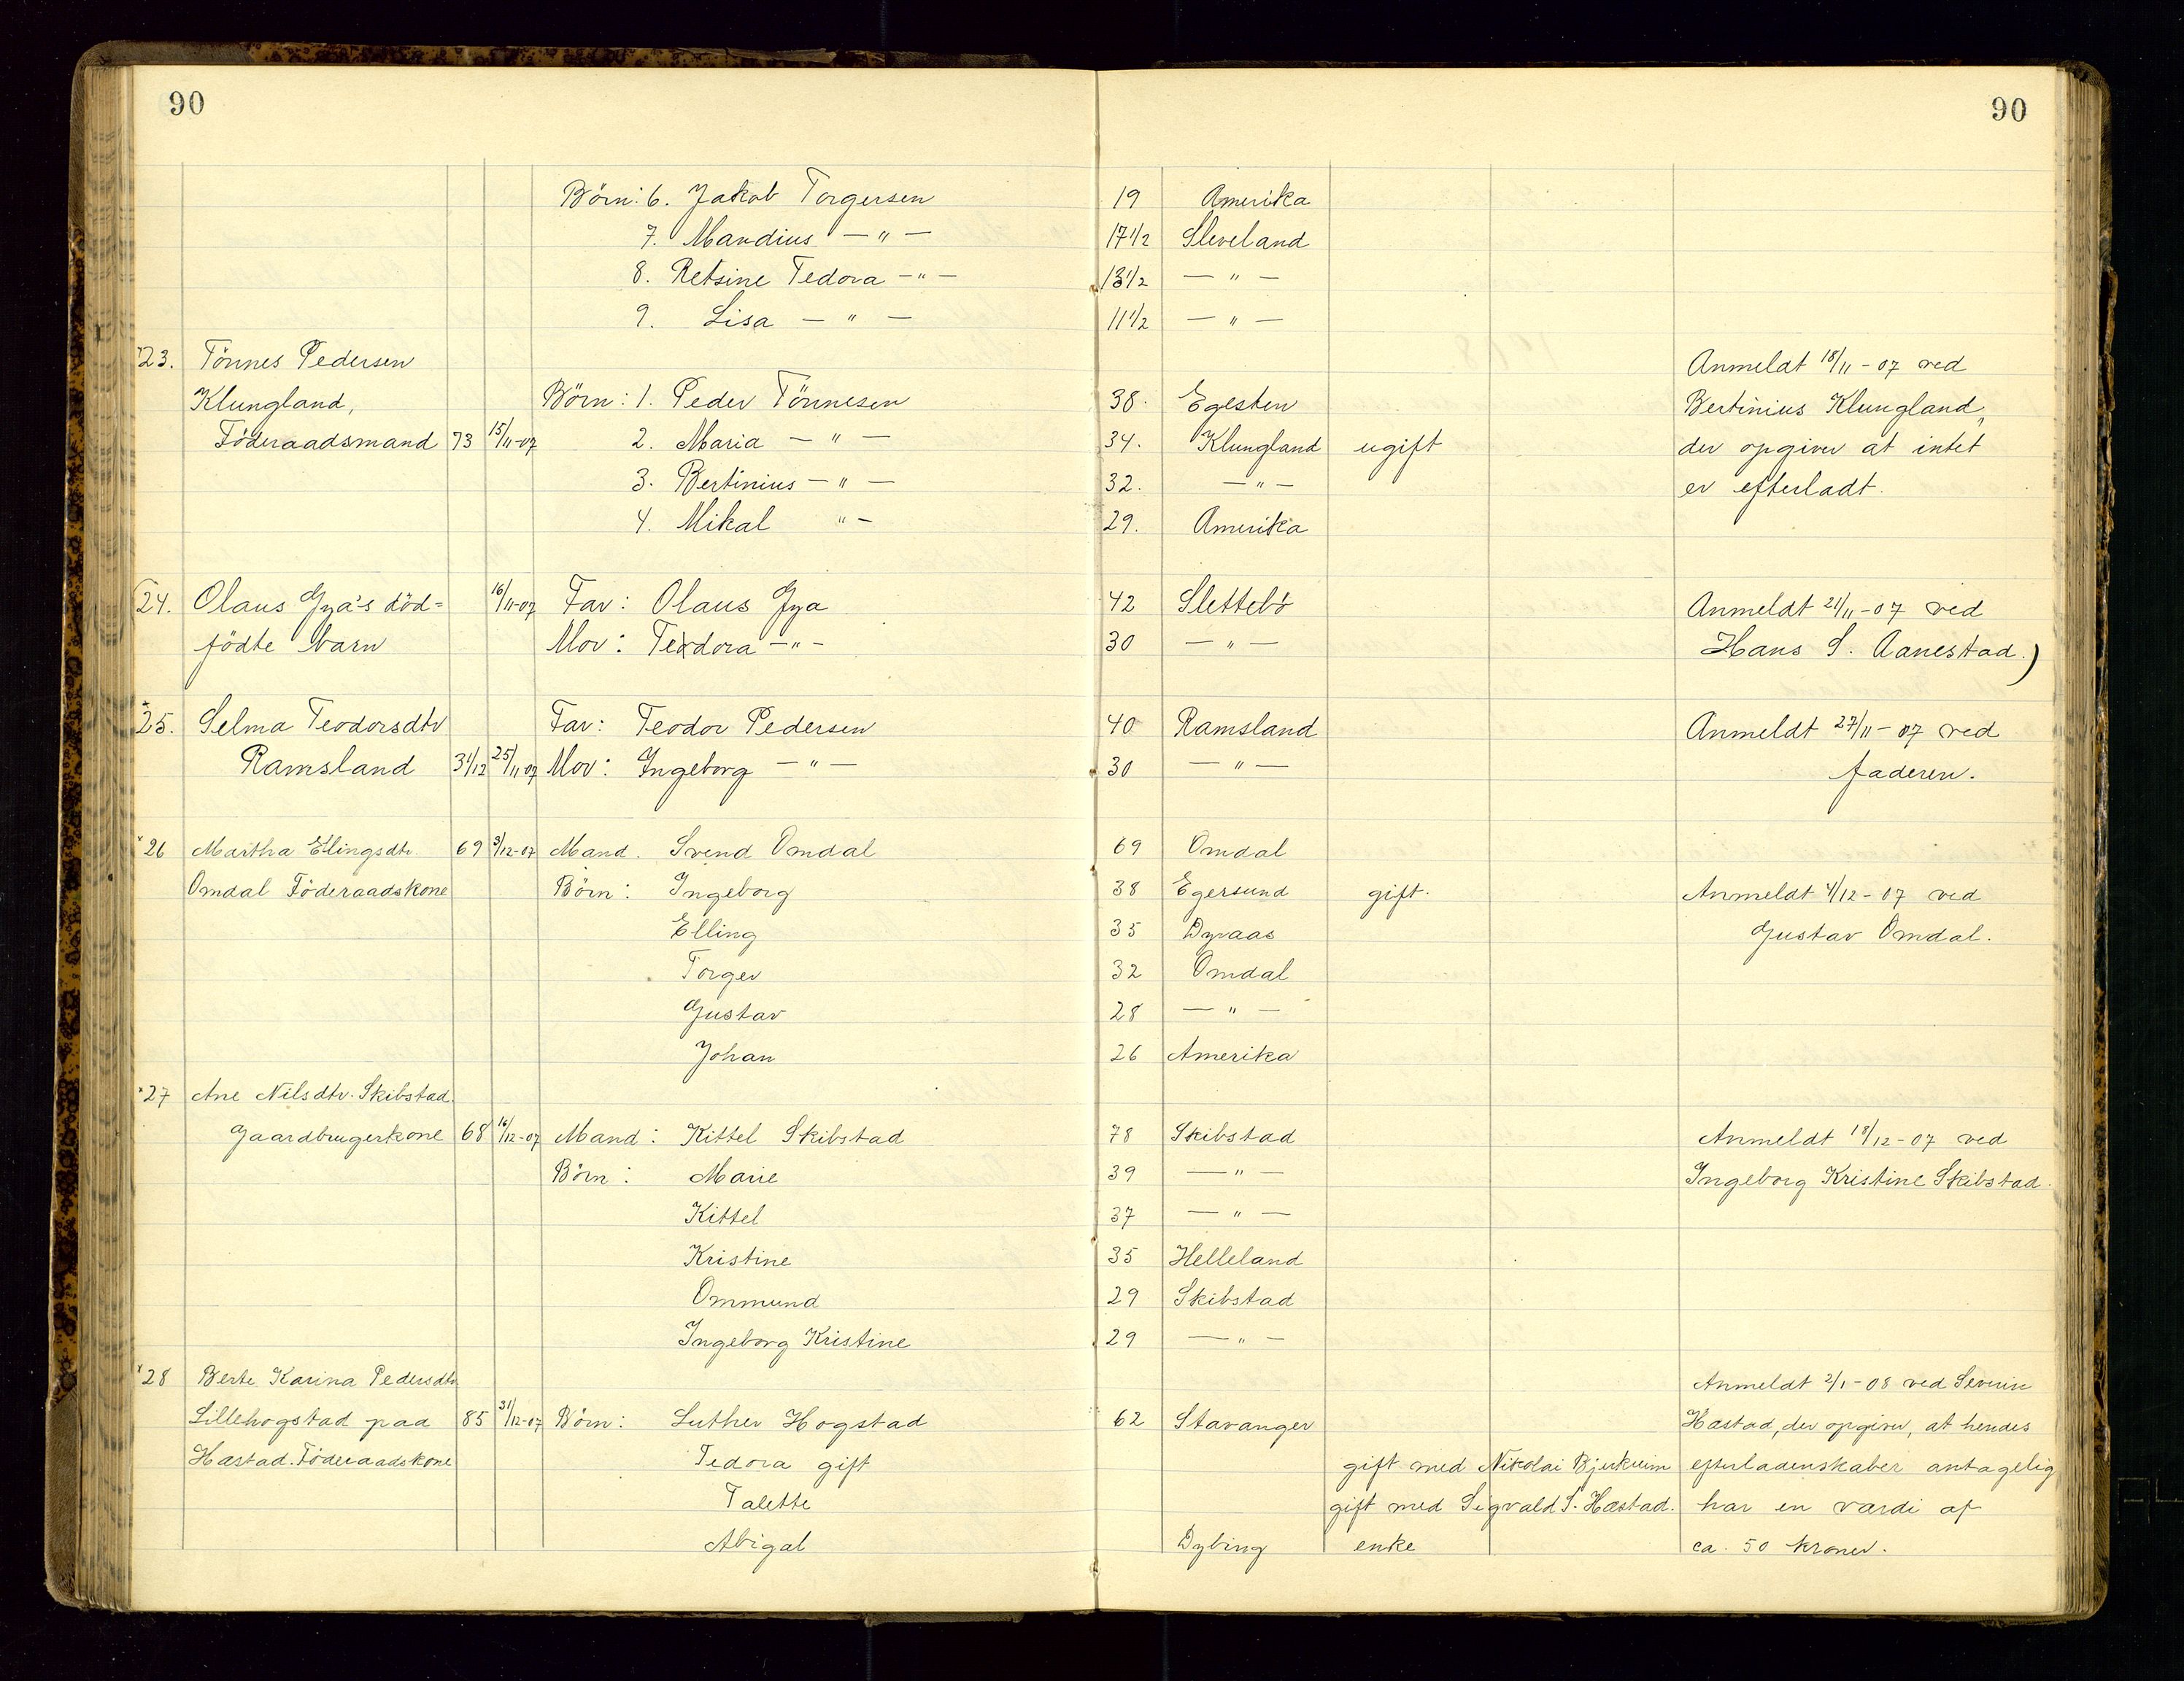 90 90
Börn: 6. Jakob Torgersen 19 Amerika
7. Mandius — " — 17 1/2 Sleveland
8. Retsine Tedora — " — 13 1/2 — " —
9. Lisa — " — 11 1/2 — " —
23. Tönnes Pedersen Anmeldt 18/11-07 ved
Klungland, Börn: 1. Peder Tönnesen 38. Egesten Bertinius Klungland,
Föderaadsmand 73 15/11-07 2. Maria — " — 34. Klungland ugift der opgiver at intet
3. Bertinius — " — 32. — " — er efterladt.
4. Mikal " — 29. Amerika
24. Olaus Gya's död= 16/11-07 Far: Olaus Gya 42 Slettebö Anmeldt 21/11-07 ved
födte barn Mor: Teodora — " — 30 — " — Hans S. Aanestad.)
25. Selma Teodorsdtr Far: Teodor Pedersen 40 Ramsland Anmeldt 27/11-07 ved
Ramsland 3 1/12 25/11 07 Mor: Ingeborg — " — 30 — " — faderen.
26 Martha Ellingsdtr. 69 3/12-07 Mand. Svend Omdal 69 Omdal
Omdal Föderaadskone Börn: Ingeborg 38 Egersund gift. Anmeldt 4/12-07 ved
Elling 35 Dyraas Gustav Omdal.
Torger 32 Omdal
Gustav 28 — " —
Johan 26 Amerika
27 Ane Nilsdtr. Skibstad.
Gaardbrugerkone 68 16/12-07 Mand: Kittel Skibstad 78 Skibstad Anmeldt 18/12-07 ved
Börn: Marie 39 — " — Ingeborg Kristine Skibstad.
Kittel 37 — " —
Kristine 35 Helleland
Ommund 29 Skibstad
Ingeborg Kristine 29 — " —
28 Berte Karina Pedersdtr Anmeldt 2/1-08 ved Severin
Lillehogstad paa 85 31/12-07 Börn: Luther Hogstad 62 Stavanger Hæstad, der opgiver, at hendes
Hæstad. Föderaadskone Tedora gift gift med Nikolai Bjerkreim efterladenskaber antagelig
Talette gift med Sigvald S. Hæstad. har en værdi af
Abigal Dybing enke ca. 50 kroner.